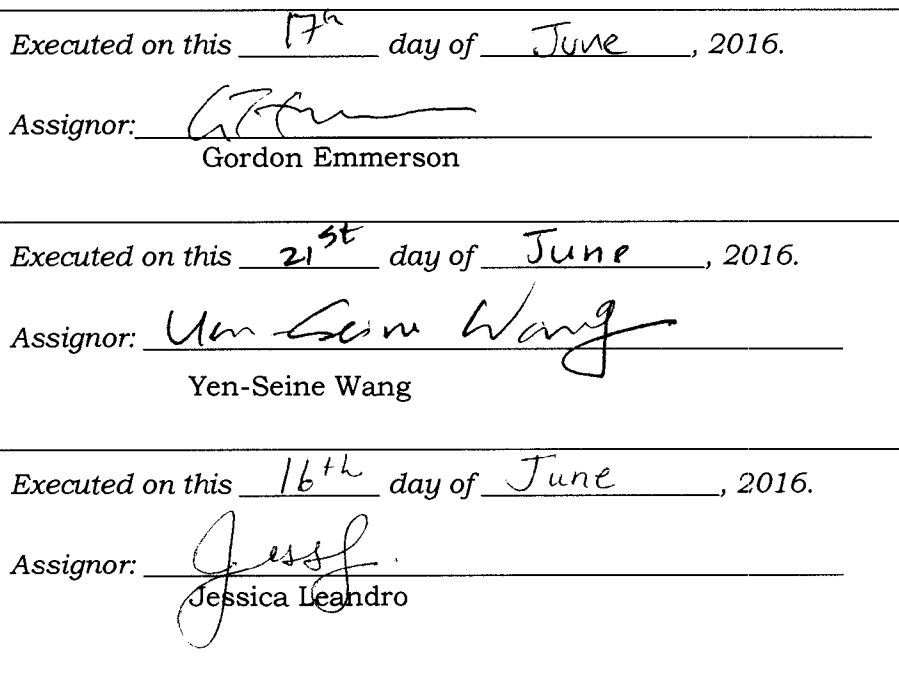 Executed on this 17th day of June, 2016.
Assignor:
Gordon Emmerson
Executed on this 21st day of June, 2016.
Assignor: Yen-Seine Wang
Yen-Seine Wang
Executed on this 16th day of June, 2016.
Assignor: Jessy.
Jessica Leandro